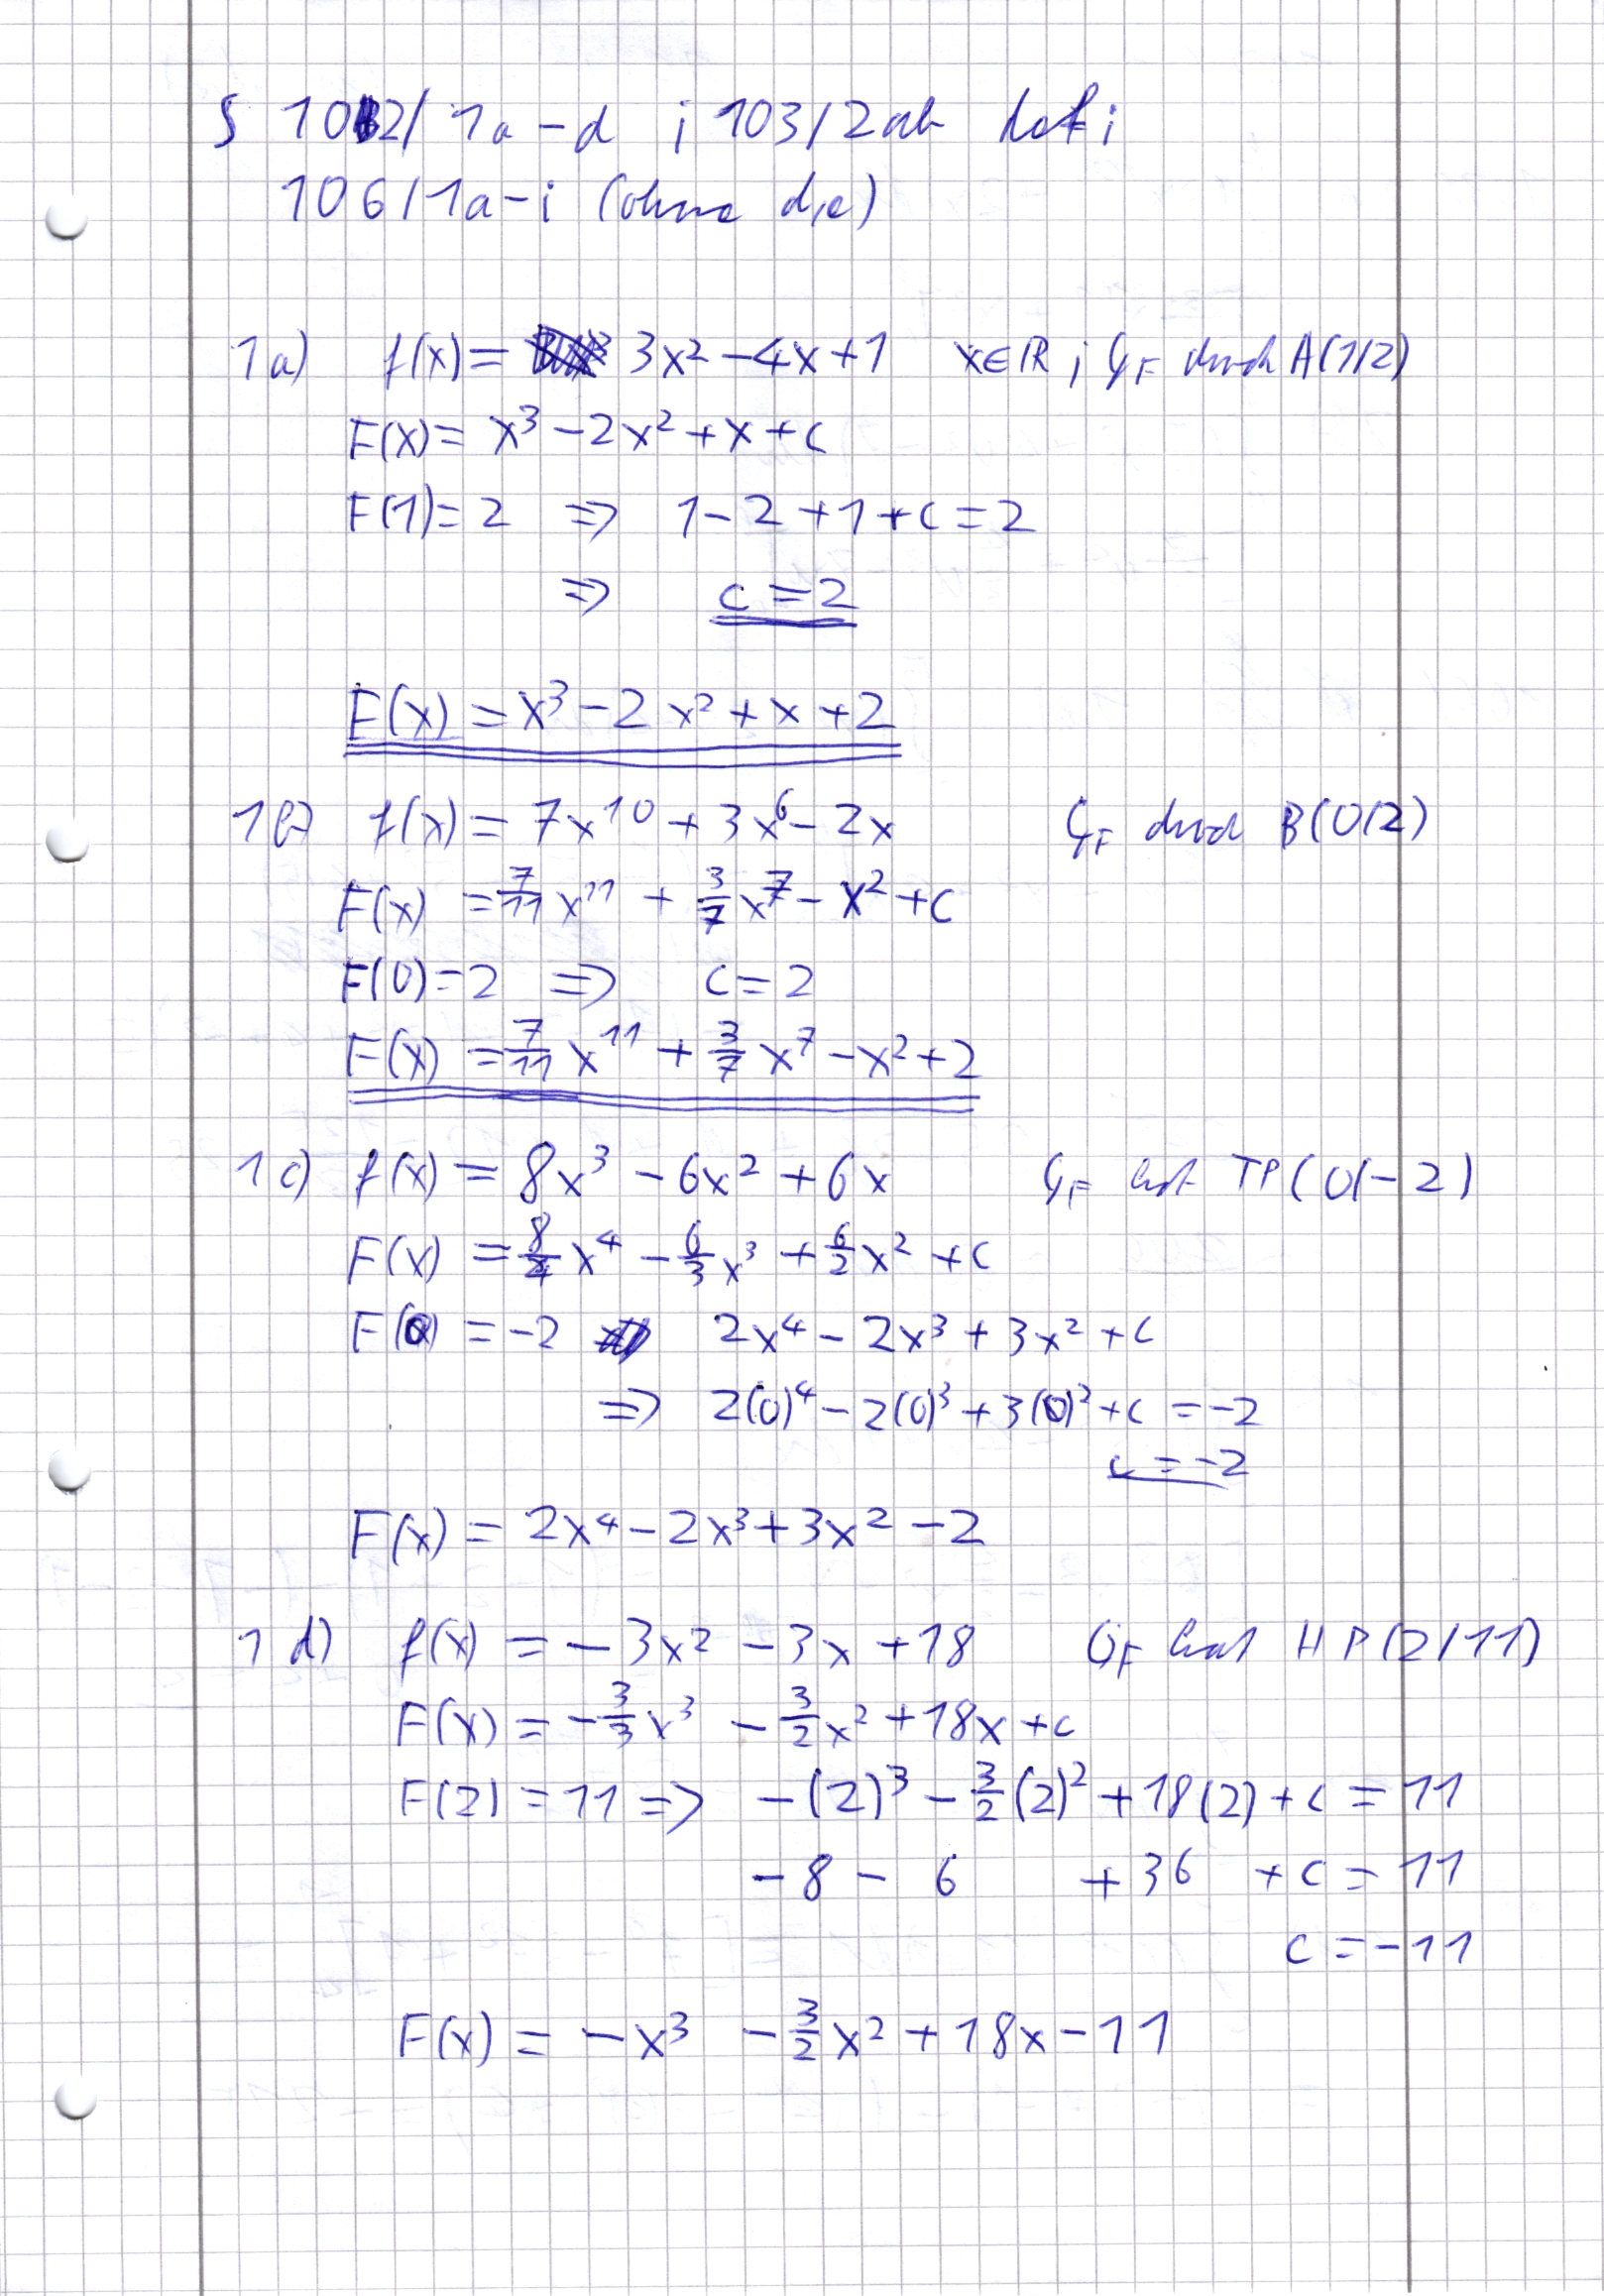 S 102/ 1a-d ; 103/2ab
106/1a-i (ohne d,e)
1a) f(x) = 3x² - 4x + 1 x∈ℝ ; G_F durch A(1/2)
F(x) = x³ - 2x² + x + c
F(1) = 2 ⇒ 1 - 2 + 1 + c = 2
⇒ c = 2
F(x) = x³ - 2x² + x + 2
1b) f(x) = 7x¹⁰ + 3x⁶ - 2x G_F durch B(0/2)
F(x) = 7/11 x¹¹ + 3/7 x⁷ - x² + c
F(0) = 2 ⇒ c = 2
F(x) = 7/11 x¹¹ + 3/7 x⁷ - x² + 2
1c) f(x) = 8x³ - 6x² + 6x G_F hat TP(0/-2)
F(x) = 8/4 x⁴ - 6/3 x³ + 6/2 x² + c
F(0) = -2 2x⁴ - 2x³ + 3x² + c
⇒ 2(0)⁴ - 2(0)³ + 3(0)² + c = -2
c = -2
F(x) = 2x⁴ - 2x³ + 3x² - 2
1d) f(x) = -3x² - 3x + 18 G_F hat HP(2/11)
F(x) = -3/3 x³ - 3/2 x² + 18x + c
F(2) = 11 ⇒ -(2)³ - 3/2 (2)² + 18(2) + c = 11
-8 - 6 + 36 + c = 11
c = -11
F(x) = -x³ - 3/2 x² + 18x - 11